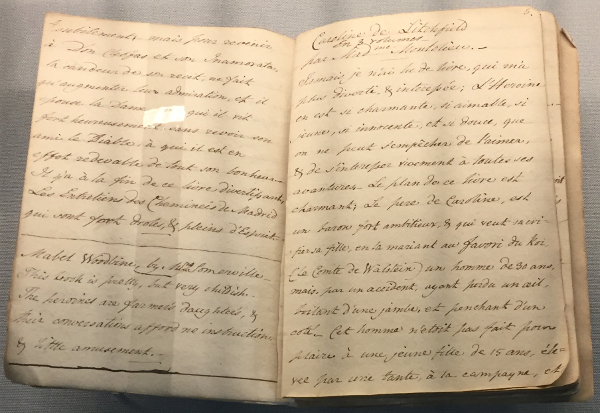 subitement, mais pour revenir
à Don Cléofas et son Inamorata,
la candeur de son recit, ne fait
qu'augmenter leur admiration, et il
épouse la Dame qui il vit
fort heureusement sans revoir son
ami le Diable à qui il est en
effort redevable de tout son bonheur.
Il y a à la fin de ce livre divertissant,
Les Entretiens des Cheminées de Madrid
qui sont fort droles, & pleins d'Esprit.
Mabel Woodbine, by Mrs. Somerville
This book is pretty, but very childish.
The persones are farmer's daughters, &
their conversations afford no instruction,
& little amusement.
6.
Caroline de Litchfield
en 3 volumes
par Madme Montolieu.
Jamais je n'ai lu de livre, qui m'a
plus diverté & interessée; L'Heroine
en est si charmante, si aimable, si
jeune, si innocente, et si douce, que
on ne peut s'empêcher de l'aimer,
& de s'interesser vivement à toutes ses
avantures. Le plan de ce livre est
charmant; Le pere de Caroline, est
un baron fort ambitieux, & qui veut sacri-
fier sa fille, en la mariant au favori du Roi
(Le Comte de Walstein) un homme de 30 ans,
mais, par un accident, ayant perdu un œil
boitant d'une jambe, et penchant d'un
coté. Cet homme n'etoit pas fait pour
plaire à une jeune fille de 15 ans, éle-
vée par une tante, à la campagne, et